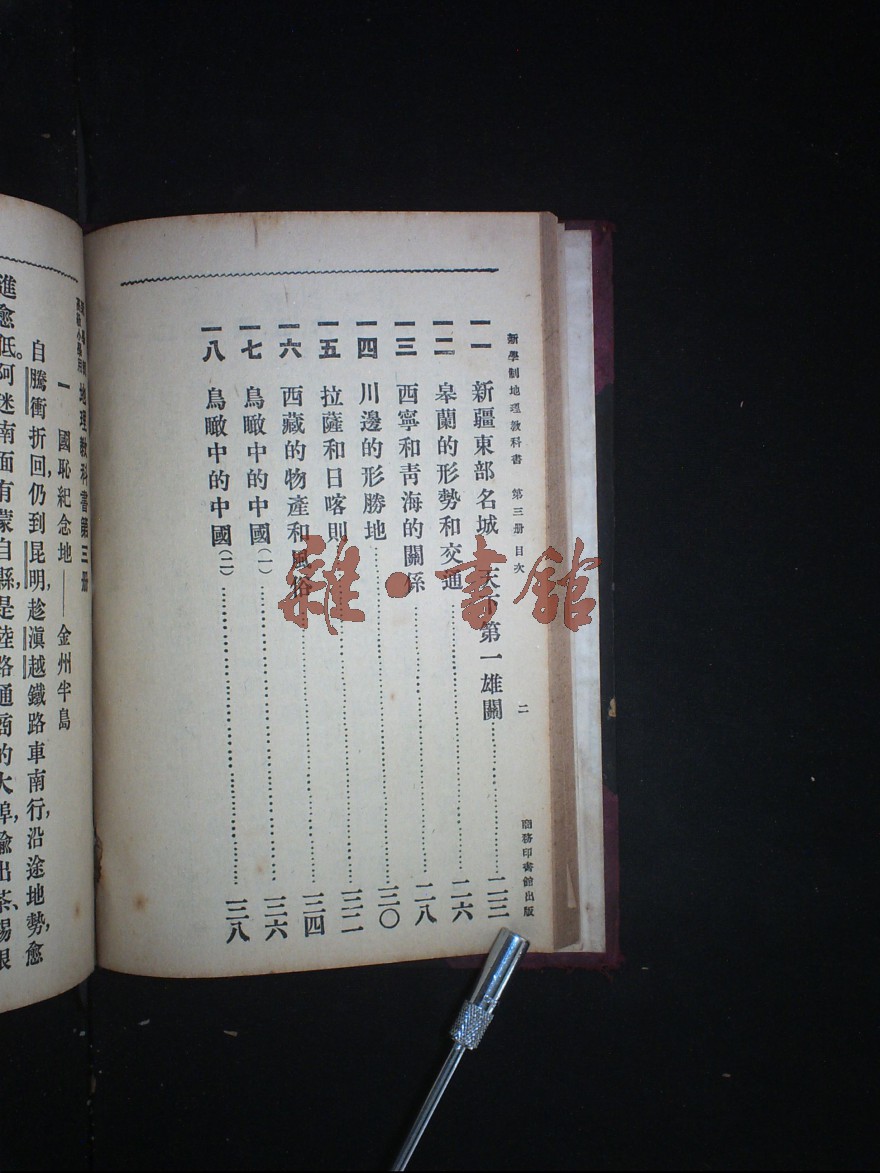 新學制地理教科書 第三册目次 二 商務印書館出版
一一 新疆東部名城 天下第一雄關 二三
一二 皋蘭的形勢和交通 二六
一三 西寧和靑海的關係 二八
一四 川邊的形勝地 三〇
一五 拉薩和日喀則 三二
一六 西藏的物產和風俗 三四
一七 鳥瞰中的中國(一) 三六
一八 鳥瞰中的中國(二) 三八
雜·書館
地理教科書第三册
一 國恥紀念地——金州半島
自騰衝折回,仍到昆明,趁滇越鐵路車南行,沿途地勢,愈
進愈低。阿迷南面有蒙自縣,是陸路通商的大埠,輸出茶、錫很